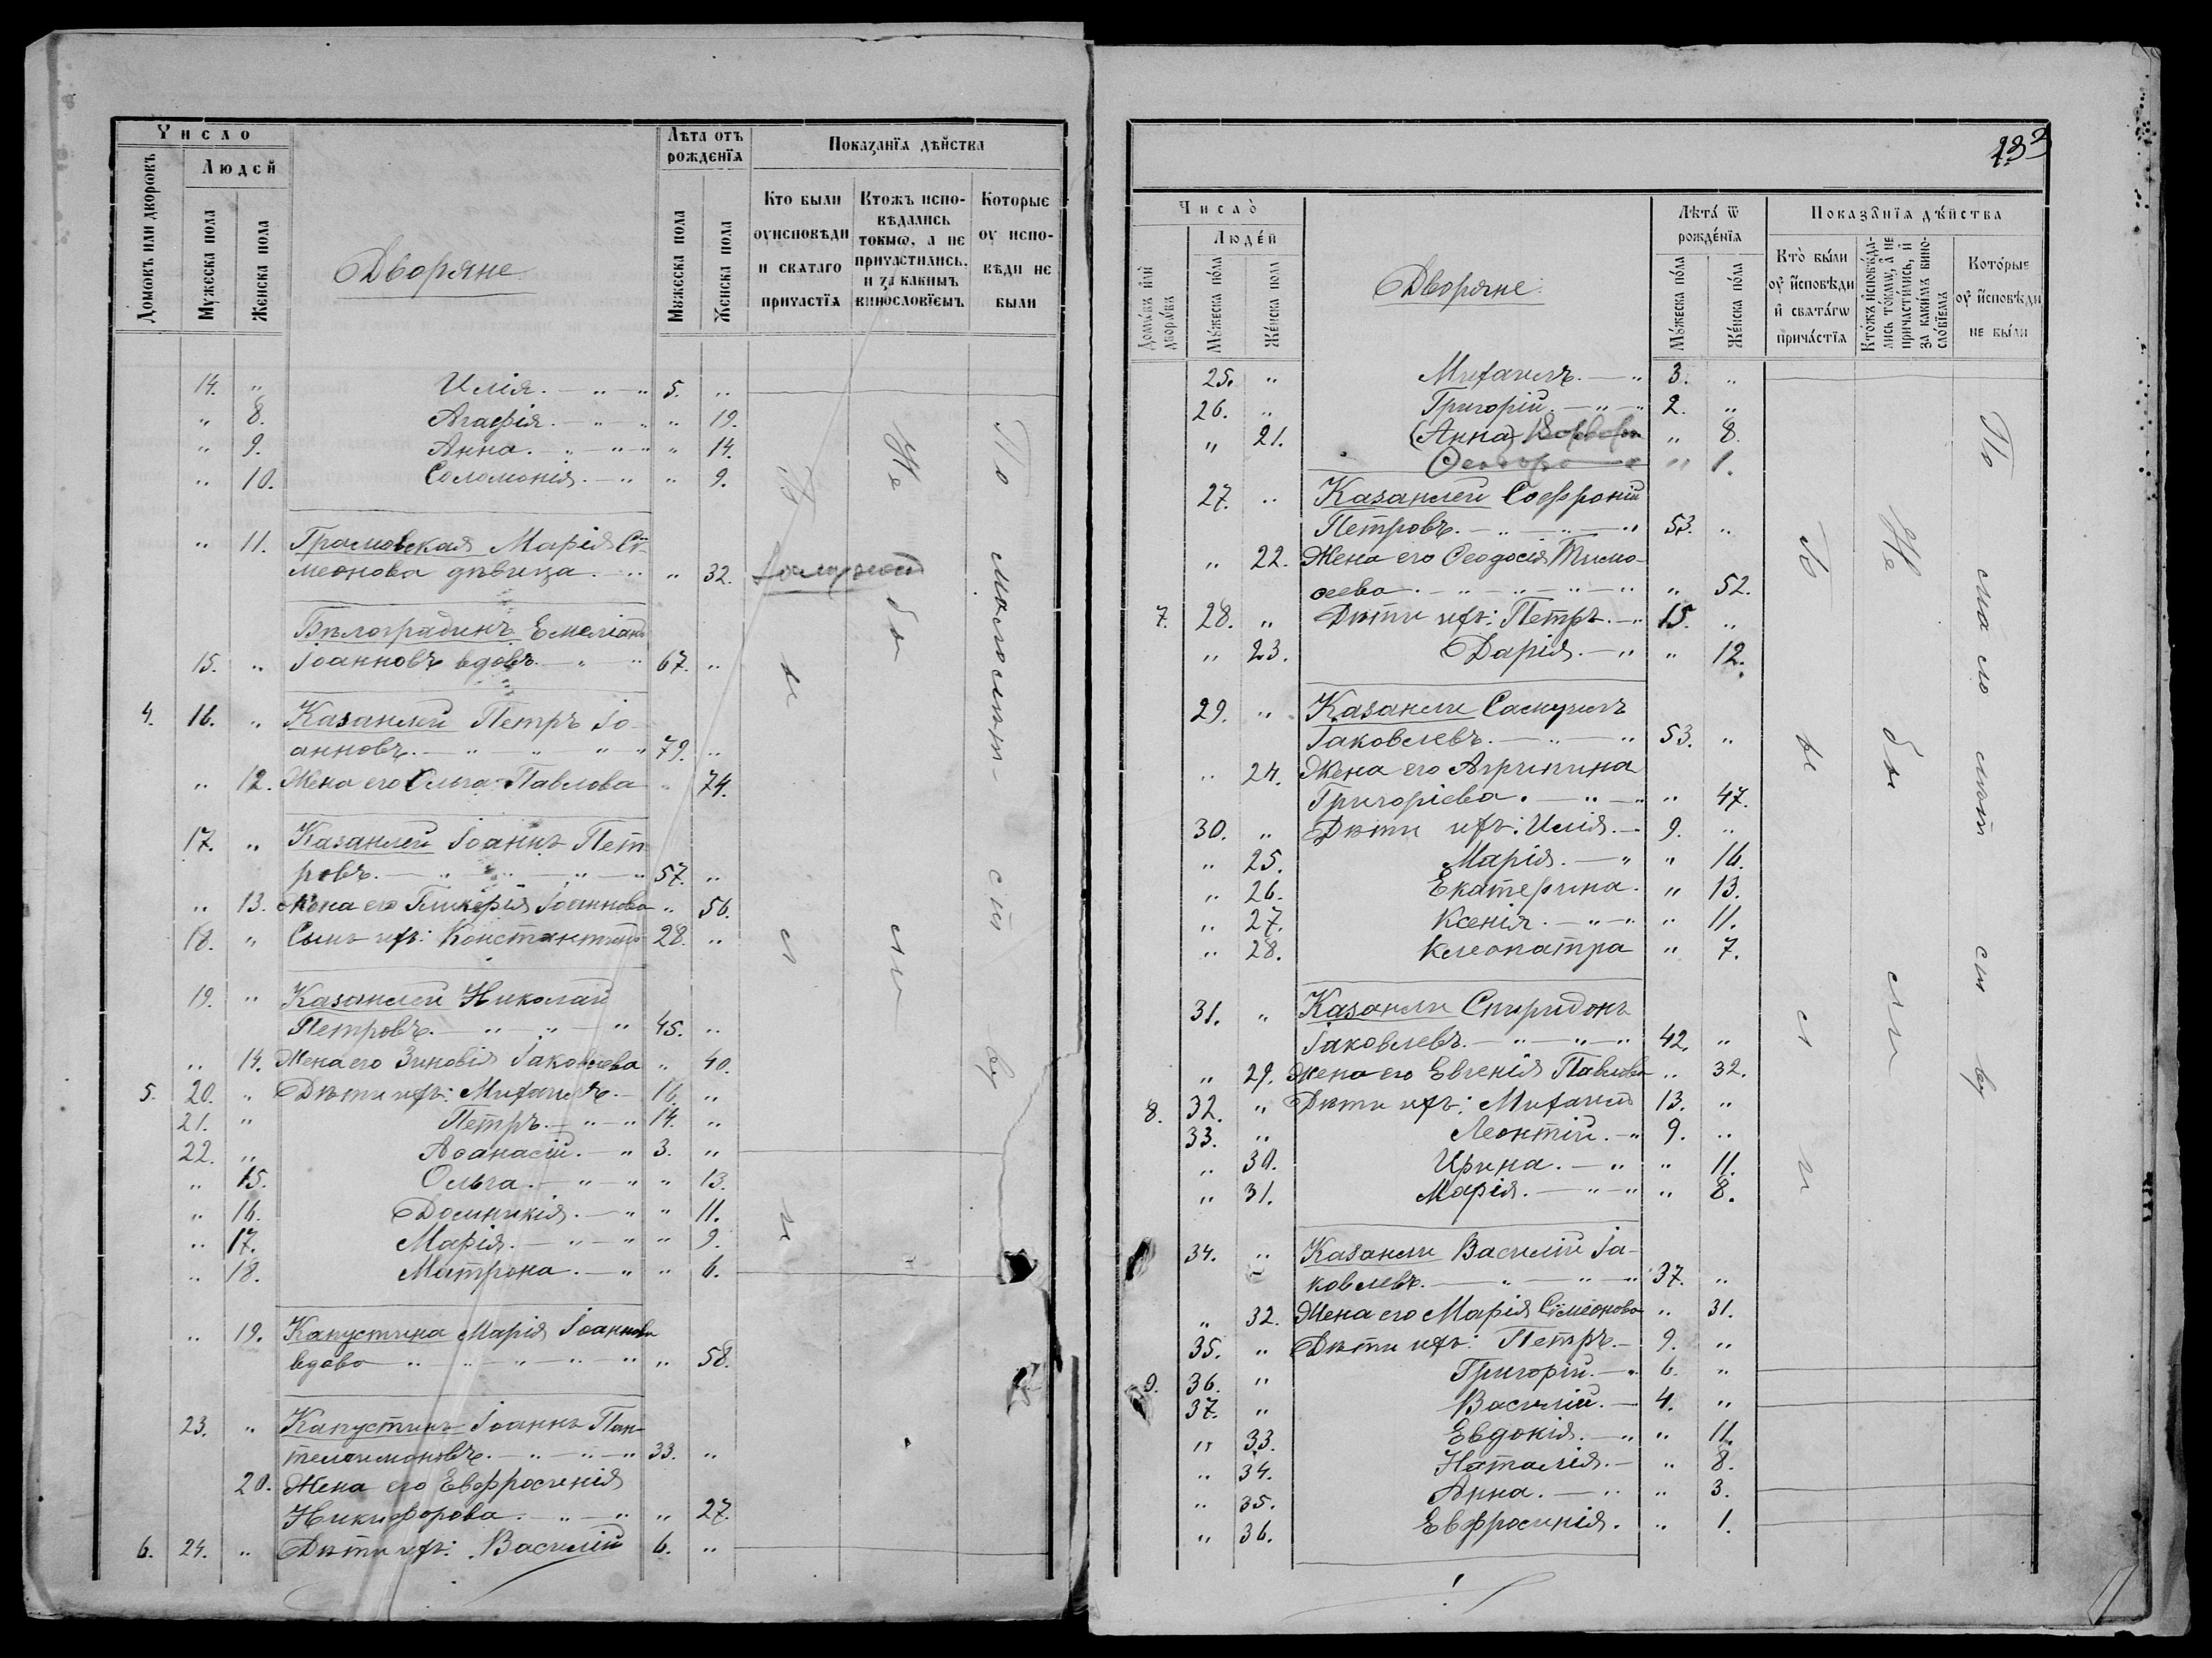 Число
Людей
Домовъ или дворовъ
Мужеска пола
Женска пола
Дворяне
Лѣта отъ рожденїѧ
Мꙋжеска пола
Женска пола
Показанїѧ дѣйства
Кто были оуисповѣди и скѧтаго причастїѧ
Ктожъ исповѣдались токмѡ, а не причастились. и за какимъ винословїемъ
Которые оу исповѣди не были
14. " Илія. — " — " 5. "
" 8. Агафія. — " — " " 19.
" 9. Анна. — " — " " 14.
" 10. Соломонія. — " " 9.
" 11. Громовская Марія Си-
меонова дѣвица. — " " 32. Замужем
Бѣлоградинъ Емеліанъ
15. " Іоанновъ вдовъ. — " — " 67. "
4. 16. " Казанлей Петръ Іо-
анновъ. — " — " — " 79. "
" 12. Жена его Ольга Павлова " 74.
17. " Казанлей Іоаннъ Пет
ровъ. — " — " — " 57. "
" 13. Жена его Гликерія Іоаннова " 56.
18. " Сынъ ихъ: Константинъ 28. "
19. " Казанлей Николай
Петровъ. — " — " — " 45. "
" 14. Жена его Зиновія Іаковлева " 40.
5. 20. " Дѣти ихъ: Михаилъ. — 16. "
21. " Петръ. — " — " 14. "
22. " Аѳанасій. — " 3. "
" 15. Ольга. — " — " " 13.
" 16. Домникія. — " " 11.
" 17. Марія. — " — " " 9.
" 18. Матрона. — " " 6.
" 19. Капустина Марія Іоаннова
вдова — " — " — " — " " 58.
23. " Капустинъ Іоаннъ Пан-
телеимоновъ. — " — " — " 33. "
20. Жена его Евфросинія
Никифорова. — " — " " 27.
6. 24. " Дѣти ихъ: Василій 6. "
Не бы ли
По малолѣт- ст ву
Б ы л и
Число̀
Люде́й
Домѡ́въ и҆лѝ дворѡ́въ
Мꙋ́жеска по́ла
Же́нска по́ла
Дворяне
Лѣта́ ѿ рожде́нїѧ
Мꙋ́жеска по́ла
Же́нска по́ла
Показа̑нїѧ дѣ́йства
Кто̀ бы́ли оу҆ и҆сповѣди и҆ свѧта́гѡ прича́стїѧ
Кто́жъ и҆сповѣ́дались то́кмѡ, а҆ не причасти́лись, и҆ за каки́мъ виносло́вїемъ
Кото́рые оу҆ и҆сповѣди не бы́ли
25. " Михаилъ. — " 3. "
26. " Григорій. — " — " 2. "
" 21. (Анна) Варвара " 8.
Ѳеодора " 1.
27. " Казанлей Софроній
Петровъ. — " — " — " 53. "
" 22. Жена его Ѳеодосія Тимо-
ѳеева. — " — " — " — " " 52.
7. 28. " Дѣти ихъ: Петръ. — " 15. "
" 23. Дарія. — " " 12.
29. " Казанли Самуилъ
Іаковлевъ. — " — " 53. "
" 24. Жена его Агрипина
Григоріева. — " — " " 47.
30. " Дѣти ихъ: Илія. — 9. "
" 25. Марія. — " " 16.
" 26. Екатерина. " 13.
" 27. Ксенія. — " — " " 11.
" 28. Клеопатра " 7.
31. " Казанли Спиридонъ
Іаковлевъ. — " — " — " 42. "
" 29. Жена его Евгенія Павлова " 32.
8. 32. " Дѣти ихъ: Михаилъ 13. "
33. " Леонтій. — " 9. "
" 30. Ирина. — " " 11.
" 31. Марія. — " — " " 8.
34. " Казанли Василій Іа-
ковлевъ. — " — " — " 37. "
" 32. Жена его Марія Симеонова " 31.
35. " Дѣти ихъ: Петръ. — 9. "
9. 36. " Григорій. — " 6. "
37. " Василій. — 4. "
" 33. Евдокія. — " " 11.
" 34. Наталія. — " 8.
" 35. Анна. — " " 3.
" 36. Евфросинія. " 1.
Б ы л и
Не бы ли
По мало лѣт ст ву